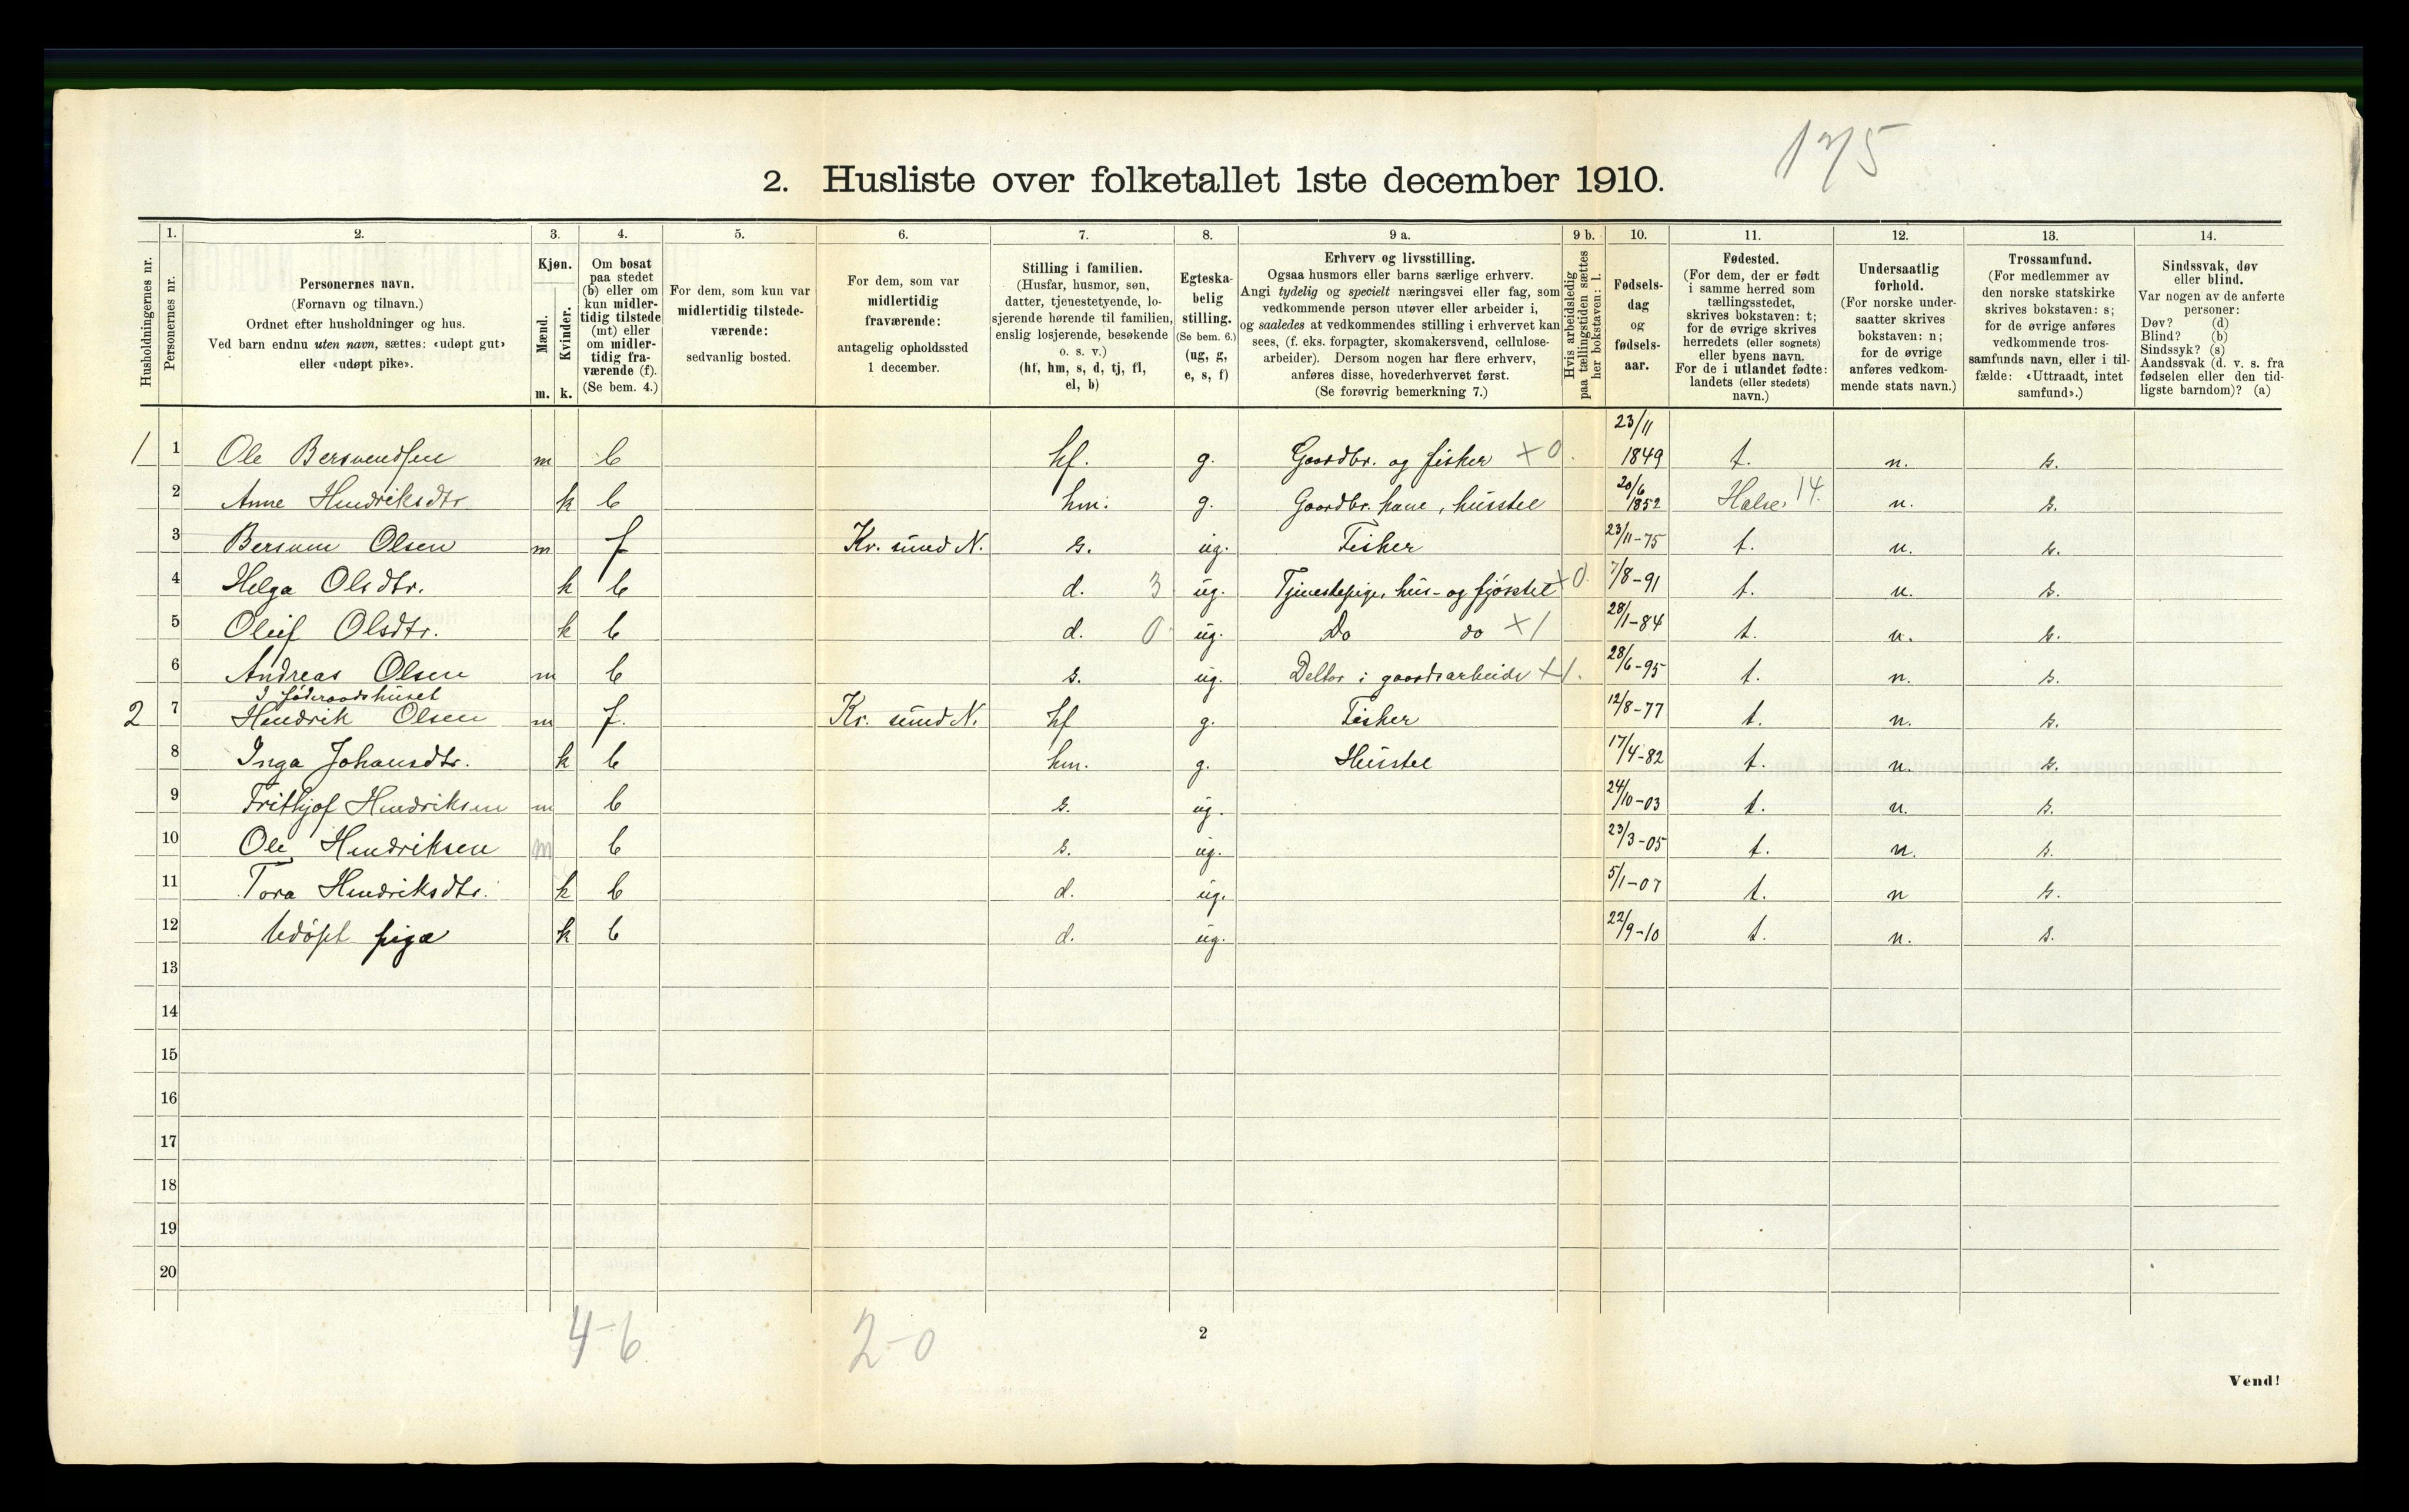 175
2. Husliste over folketallet 1ste december 1910.
Husholdningernes nr.
1.
Personernes nr.
2.
Personernes navn.
(Fornavn og tilnavn.)
Ordnet efter husholdninger og hus.
Ved barn endnu uten navn, sættes: «udøpt gut»
eller «udøpt pike».
3.
Kjøn.
Mænd.
Kvinder.
m. k.
4.
Om bosat
paa stedet
(b) eller om
kun midler-
tidig tilstede
(mt) eller
om midler-
tidig fra-
værende (f).
(Se bem. 4.)
5.
For dem, som kun var
midlertidig tilstede-
værende:
sedvanlig bosted.
6.
For dem, som var
midlertidig
fraværende:
antagelig opholdssted
1 december.
7.
Stilling i familien.
(Husfar, husmor, søn,
datter, tjenestetyende, lo-
sjerende hørende til familien,
enslig losjerende, besøkende
o. s. v.)
(hf, hm, s, d, tj, fl,
el, b)
8.
Egteska-
belig
stilling.
(Se bem. 6.)
(ug, g,
e, s, f)
9 a.
Erhverv og livsstilling.
Ogsaa husmors eller barns særlige erhverv.
Angi tydelig og specielt næringsvei eller fag, som
vedkommende person utøver eller arbeider i,
og saaledes at vedkommendes stilling i erhvervet kan
sees, (f. eks. forpagter, skomakersvend, cellulose-
arbeider). Dersom nogen har flere erhverv,
anføres disse, hovederhvervet først.
(Se forøvrig bemerkning 7.)
9 b.
Hvis arbeidsledig
paa tællingstiden sættes
her bokstaven: l.
10.
Fødsels-
dag
og
fødsels-
aar.
11.
Fødested.
(For dem, der er født
i samme herred som
tællingsstedet,
skrives bokstaven: t;
for de øvrige skrives
herredets (eller sognets)
eller byens navn.
For de i utlandet fødte:
landets (eller stedets)
navn.)
12.
Undersaatlig
forhold.
(For norske under-
saatter skrives
bokstaven: n;
for de øvrige
anføres vedkom-
mende stats navn.)
13.
Trossamfund.
(For medlemmer av
den norske statskirke
skrives bokstaven: s;
for de øvrige anføres
vedkommende tros-
samfunds navn, eller i til-
fælde: «Uttraadt, intet
samfund».)
14.
Sindssvak, døv
eller blind.
Var nogen av de anførte
personer:
Døv? (d)
Blind? (b)
Sindssyk? (s)
Aandssvak (d. v. s. fra
fødselen eller den tid-
ligste barndom)? (a)
1 1 Ole Bersvendsen m b hf. g. Gaardbr. og fisker x0. 23/11 1849 t. n. s.
2 Anne Hendriksdtr k b hm. g. Gaardbr. kone, husstel 20/6 1852 Halse. 14. n. s.
3 Bersven Olsen m f Kr. sund N. s. ug. Fisker 23/11-75 t. n. s.
4 Helga Olsdtr. k b d. 3 ug. Tjenestepige, hus- og fjøsstel x0. 7/8-91 t. n. s.
5 Oluf Olsdtr. k b d. 0 ug. Do do x1 28/1-84 t. n. s.
6 Andreas Olsen m b s. ug. Deltar i gaardsarbeide x1. 28/6-95 t. n. s.
I föderaadshuset
2 7 Hendrik Olsen m f. Kr. sund N. hf g. Fisker 12/8-77 t. n. s.
8 Inga Johansdtr. k b hm. g. Husstel 17/4-82 t. n. s.
9 Frithjof Hendriksen m b s. ug. 24/10-03 t. n. s.
10 Ole Hendriksen m b s. ug. 23/3-05 t. n. s.
11 Tora Hendriksdtr. k b d. ug. 5/1-07 t. n s.
12 Udøpt pige k b d. ug. 22/9-10 t. n. s.
13
14
15
16
17
18
19
20
4-6 2-0
2
Vend!